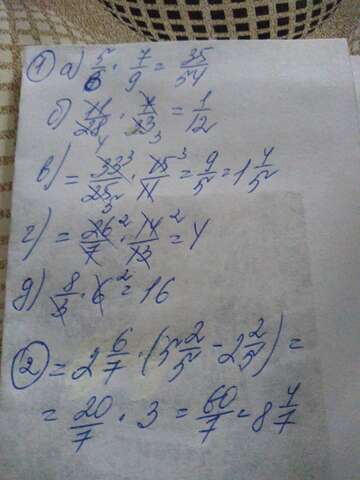 ① а) 5/6 · 7/9 = 35/54
б) 11/28 4 · 7/33 3 = 1/12
в) = 33 3/25 5 · 15 3/11 = 9/5 = 1 4/5
г) = 26 2/7 · 14 2/13 = 4
д) 8/3 · 6 2 = 16
② = 2 6/7 · (5 2/5 - 2 2/5) =
= 20/7 · 3 = 60/7 = 8 4/7